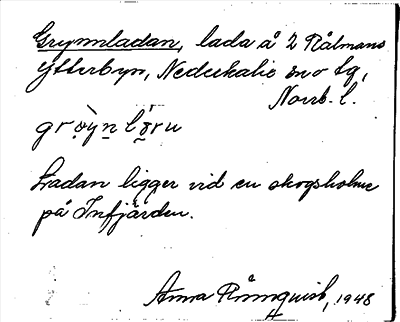 Grynnladan, lada å 2 Rålmans
Ytterbyn, Nederkalix sn o tg,
Norrb. l.
Ladan ligger vid en skogsholme
på Infjärden.
Anna Rönnquist, 1948